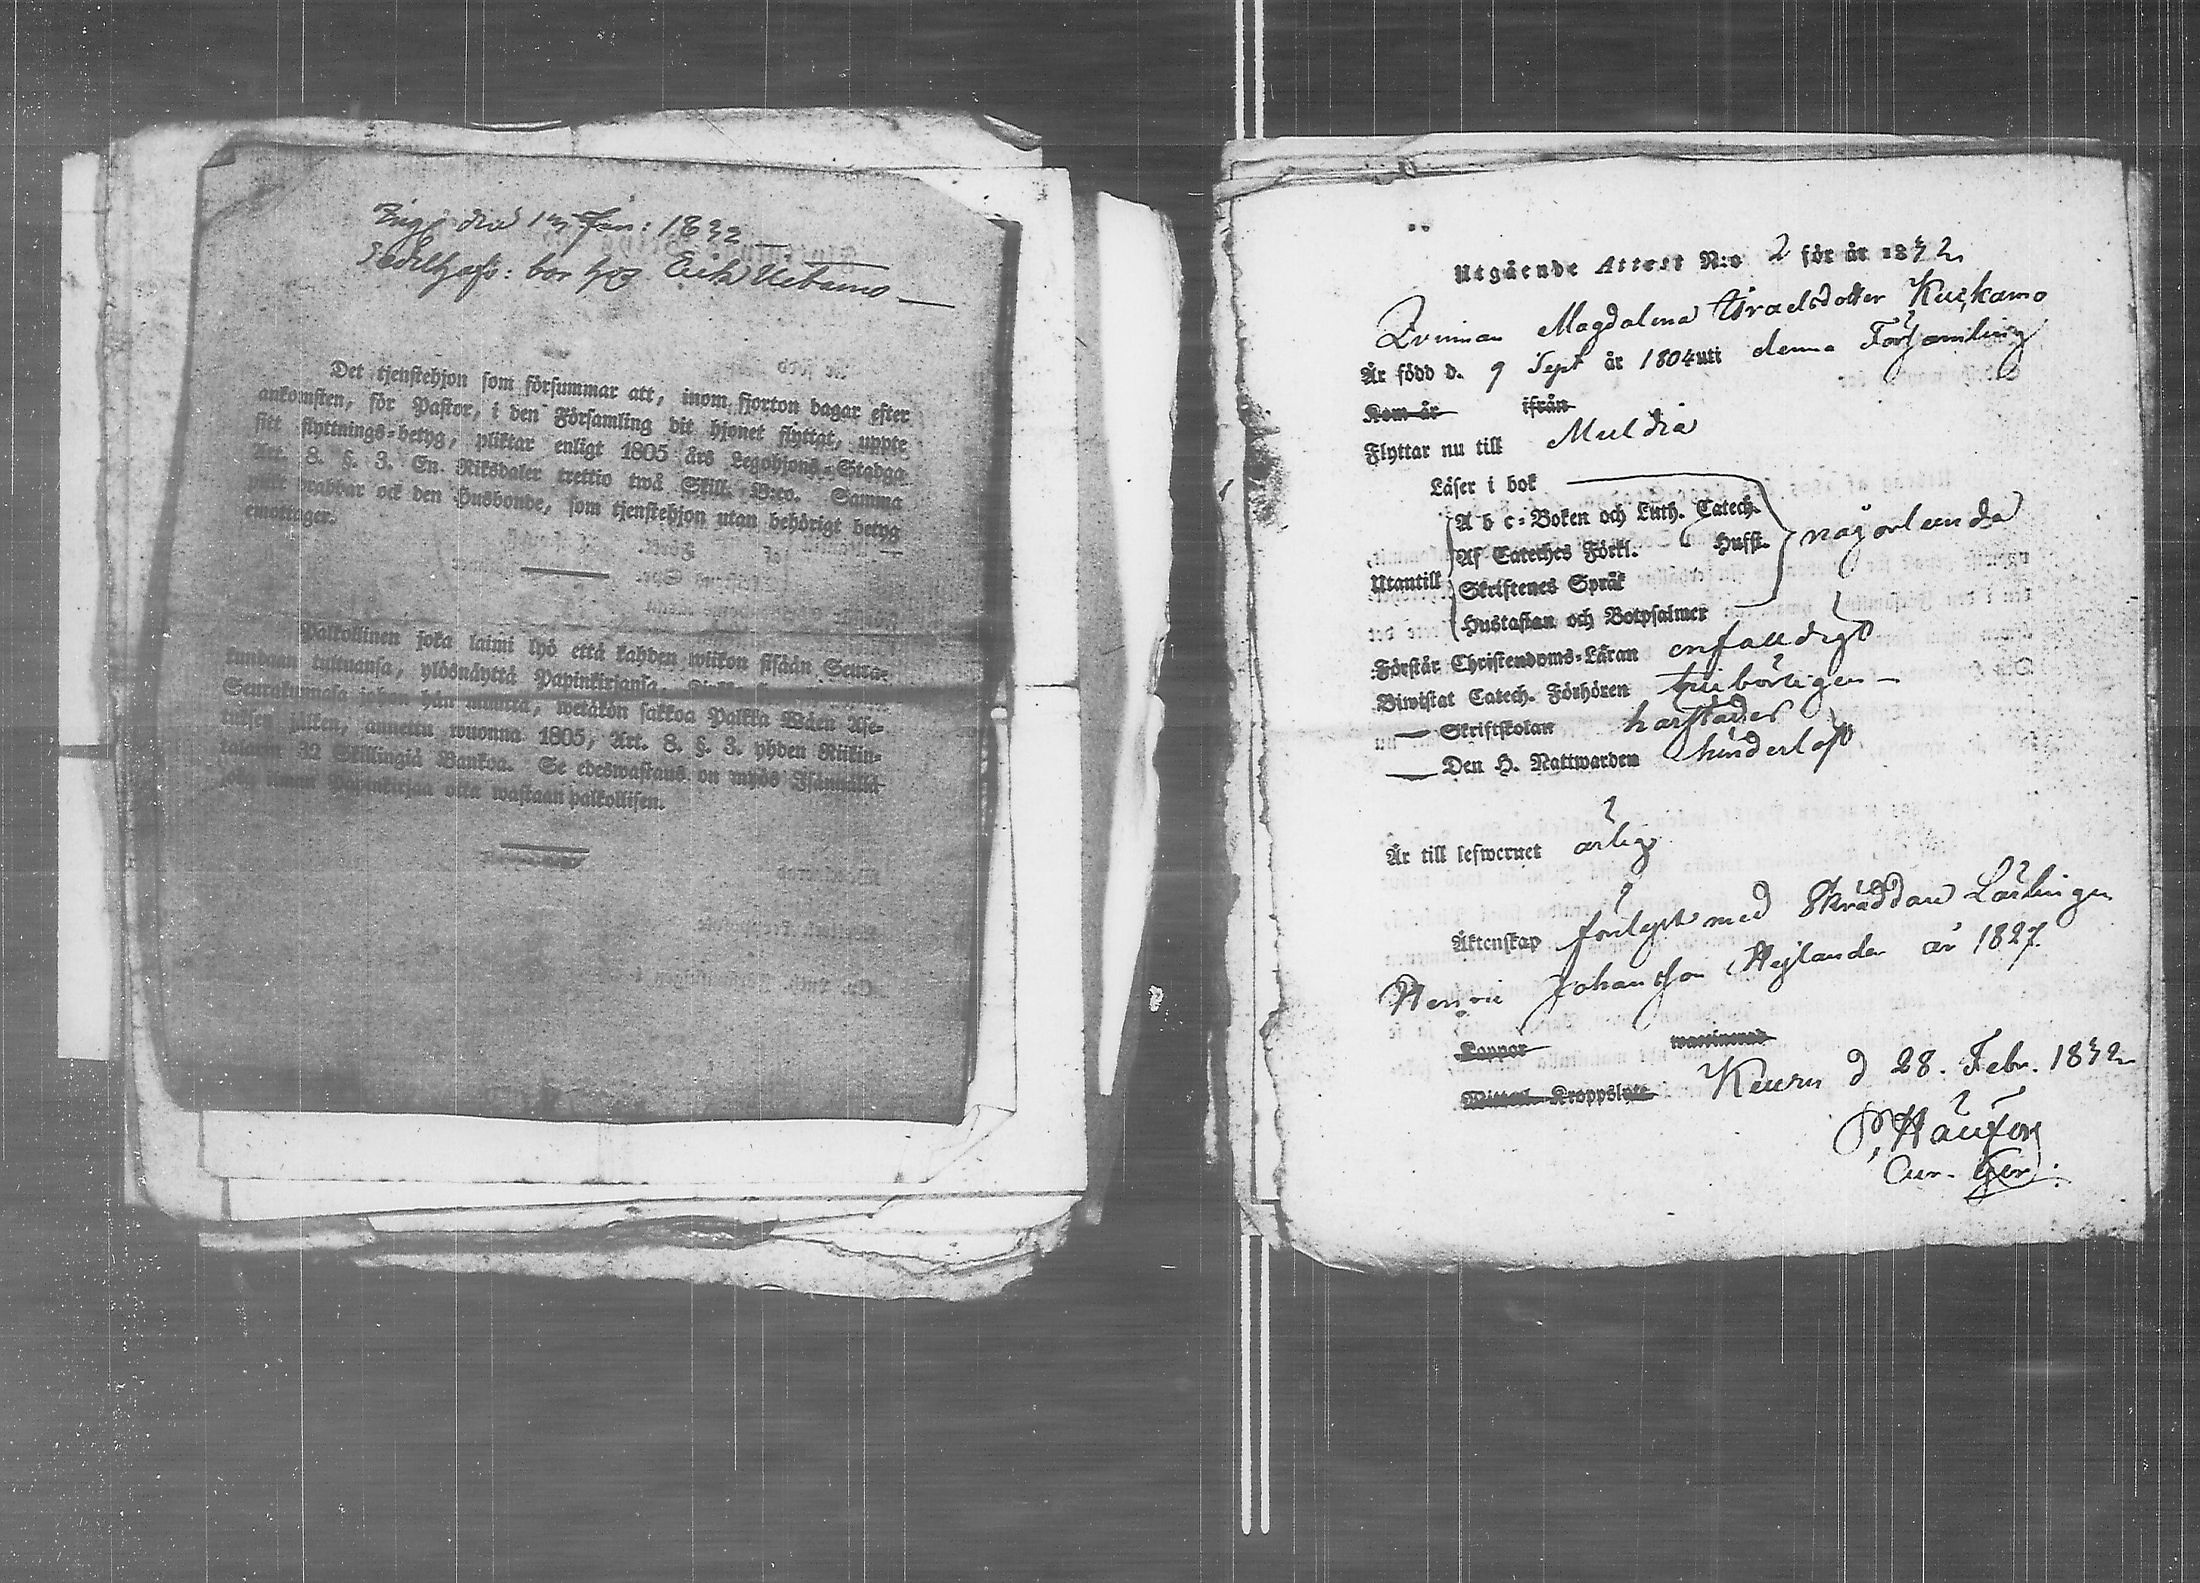 den 13 Jan: 1832
bor hos Erik
Det tjenstehjon som försummar att, inom fjorton dagar efter
ankomsten, för Pastor, i den Församling dit hjonet flyttat, uppte
sitt flyttnings-betyg, pliktar enligt 1805 års Legohjons-Stadga
Art. 8. §. 3. En Riksdaler trettio twå Skill. B:co. Samma
plikt drabbar ock den Husbonde, som tjenstehjon utan behörigt betyg
emottager.
Palkollinen joka laimi lyö että kahden wiikon sisään Seura-
kundaan tultuansa, ylösnäyttä Papinkirjansa,
Seurakunnasa johon hän muutta, wetäkön sakkoa Palkka Wäen Ase-
tuksen jälken, annettu wuonna 1805, Art. 8. §. 3. yhden Riikin-
talarin 32 Skillingiä Bankoa. Se edeswastaus on myös Isännällä
joka ilman Papinkirjaa otta wastaan palkollisen.
Utgående Attest N:o 2 för år 1832
Qvinnan Magdalena Israelsdotter Kuckamo
Är född d. 9 Sept år 1804 uti denna Församling
Kom år ifrån
Flyttar nu till Muldia
Läser i bok
A b c-Boken och Luth. Catech.
Af Cateches Förkl. Husst.
Utantill
någorlunda
Skriftenes Språk
Hustaflan och Botpsalmer
Förstår Christendoms-Läran enfalldigt
Biwistat Catech. Förhören tillbörligen
— Skriftskolan
— Den H. Nattwarden
Är till lefwernet ärlig
Äktenskap förlyst med Skräddare Lärlingen
Henric Johansson Hejlander år 1827.
Koppor waccinerad
Kroppslyte
Keuru d 28. Febr. 1832